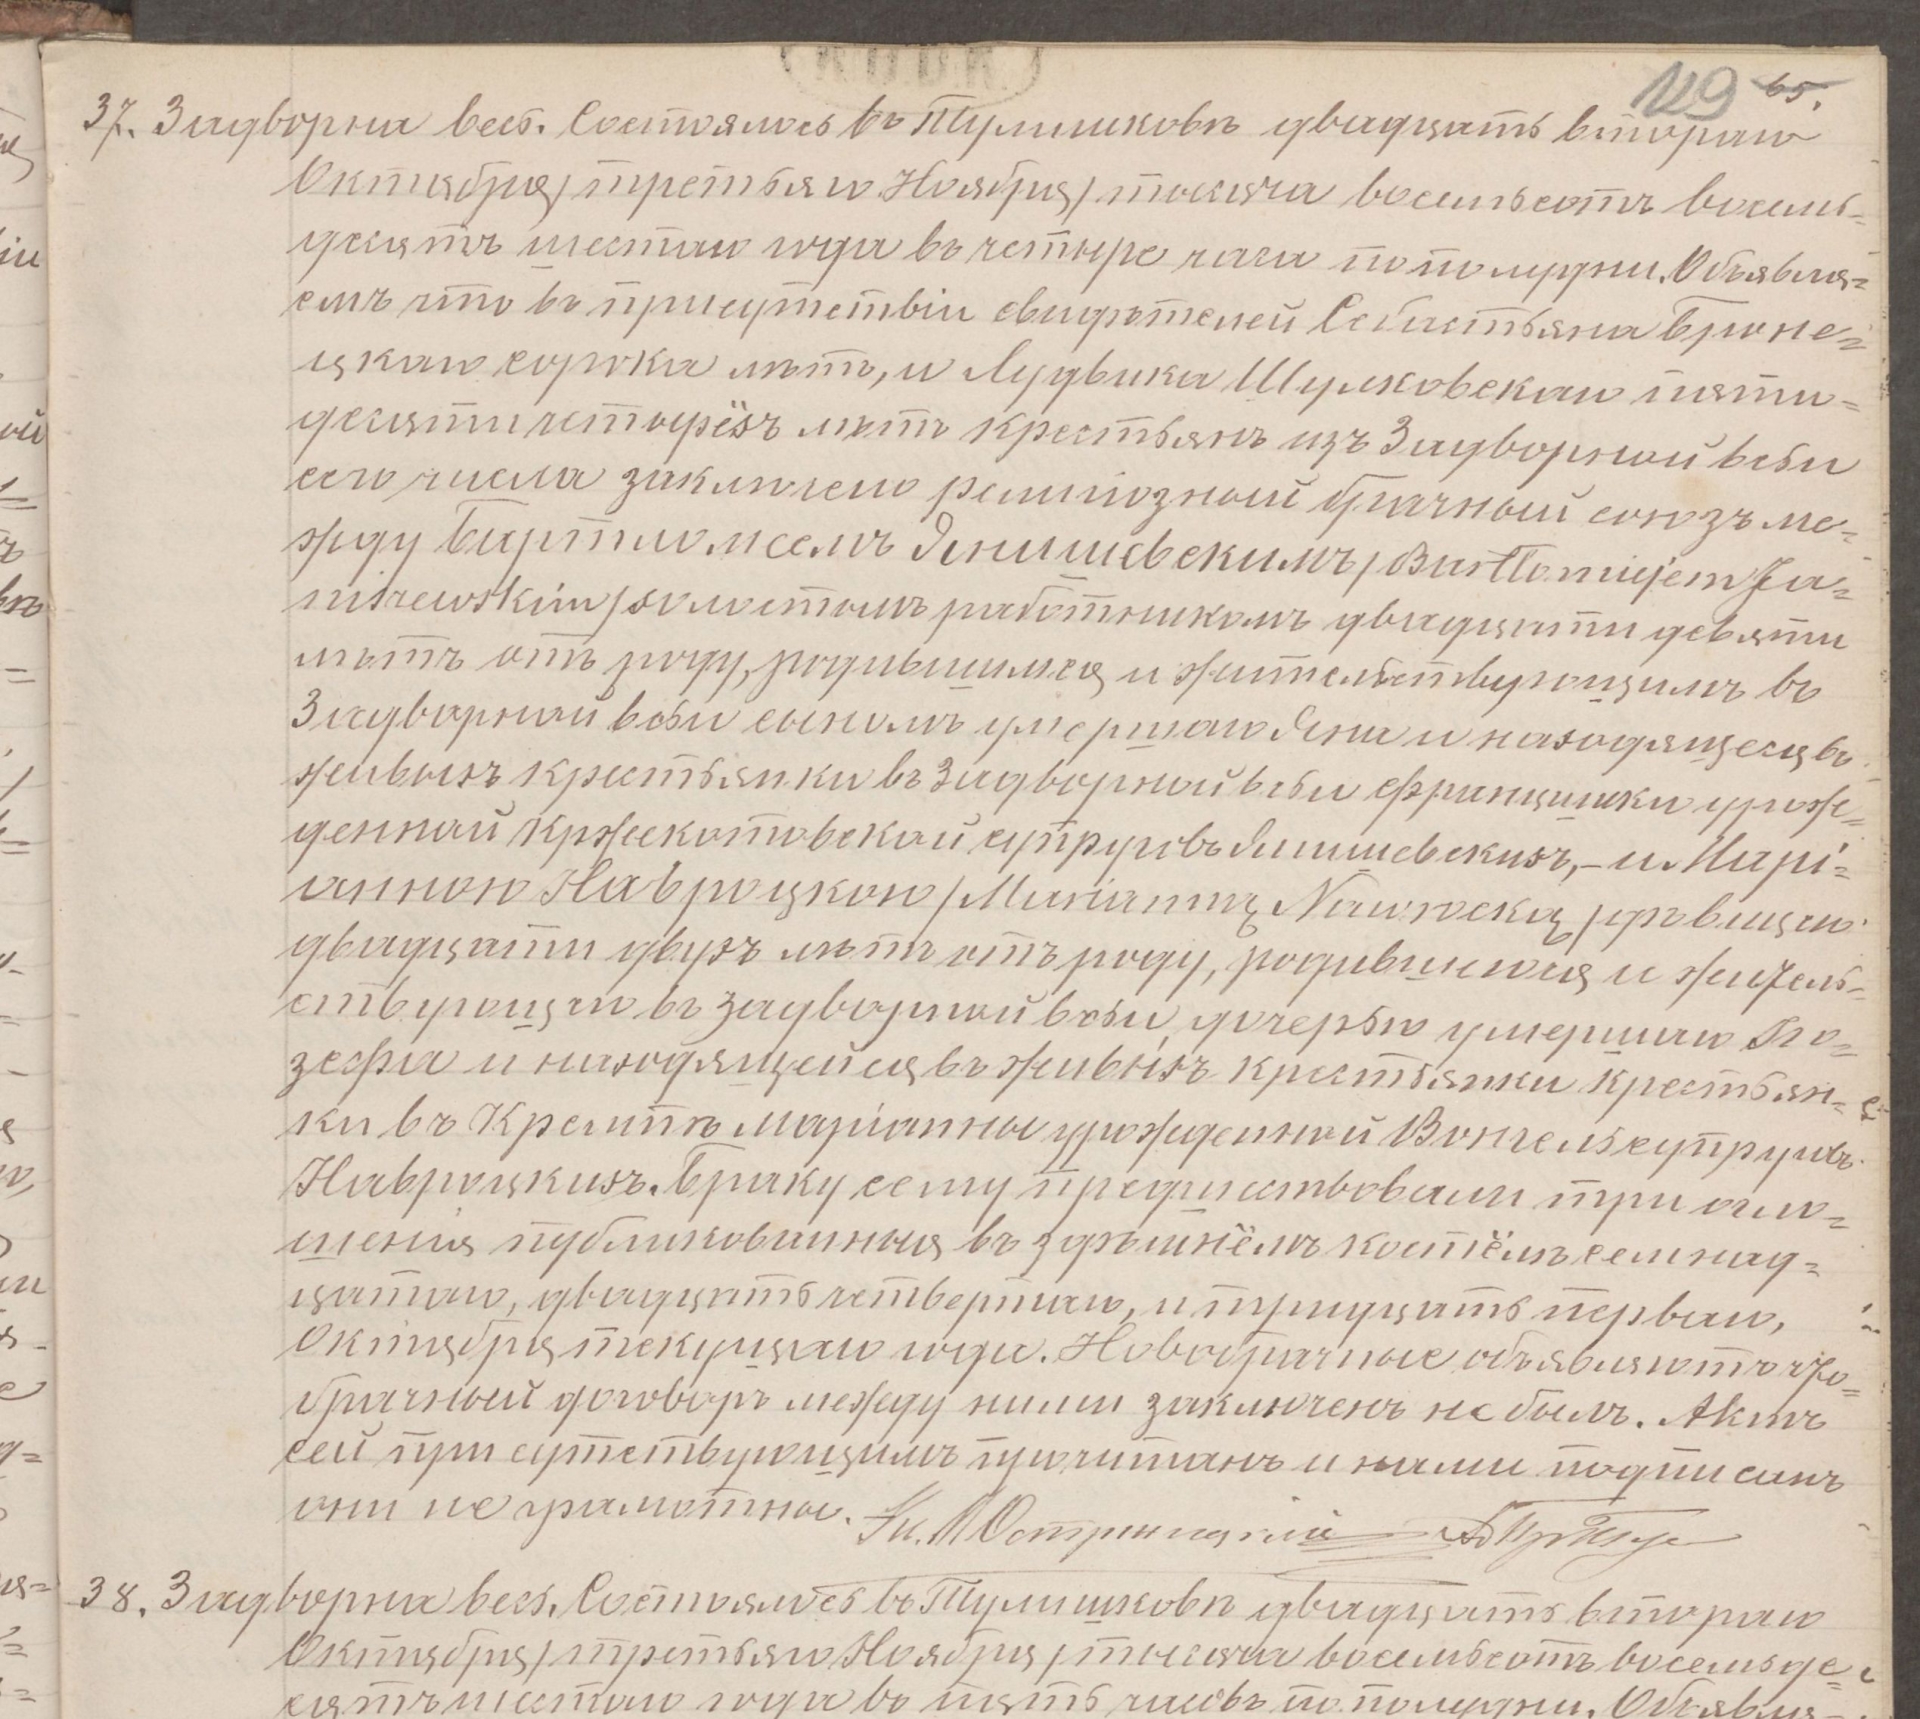 129 65.
37. Задворна весь. Состоялось въ Тулишковѣ двадцать втораго
Октября /третьяго Ноября/ тысяча восемьсотъ восемь=
десятъ шестаго года въ четыре часа по полудни. Объявля=
емъ что въ присутствіи свидѣтелей Себастьяна Броне=
цкаго сорока лѣтъ, и Лудвика Шулковскаго пяти=
десяти четырёхъ лѣтъ крестьянъ изъ Задворной веси
сего числа заключено религіозный брачный союзъ ме=
жду Бартломеемъ Янишевскимъ /Bartłomiejem Ja=
niszewskim/ холостымъ работникомъ двадцати девяти
лѣтъ отъ роду, родившимся и жительствующимъ въ
Задворной веси сыномъ умершаго Яна и находящеися въ
живыхъ крестьянки въ Задворной веси Францишки урож=
денной Кржекотовской супруговъ Янишевскихъ, – и Марі=
анною Навроцкою /Marianną Nawrocką/ дѣвицею
двадцати двухъ лѣтъ отъ роду, родившеюся и житель=
ствующею въ Задворной веси, дочерью умершаго Іо=
зефа и находящейся въ живыхъ крестьянки крестьян=
ки въ Кремпѣ Маріанны урожденной Вончель супруговъ
Навроцкихъ. Браку сему предшествовали три огло=
шенія публикованныя въ здѣшнёмъ костёлѣ семнад=
цатаго, двадцать четвертаго, и тридцать перваго,
Октября текущаго года. Новобрачные объявляютъ что
брачный договоръ между ними заключенъ не былъ. Актъ
сей присутствующимъ прочитанъ и нами подписанъ
они не грамотны.
38. Задворна весь. Состоялось въ Тулишковѣ двадцать втораго
Октября /третьяго Ноября/ тысяча восемьсотъ восемьде=
сятъ шестаго года въ пять часовъ по полудни. Объявля=